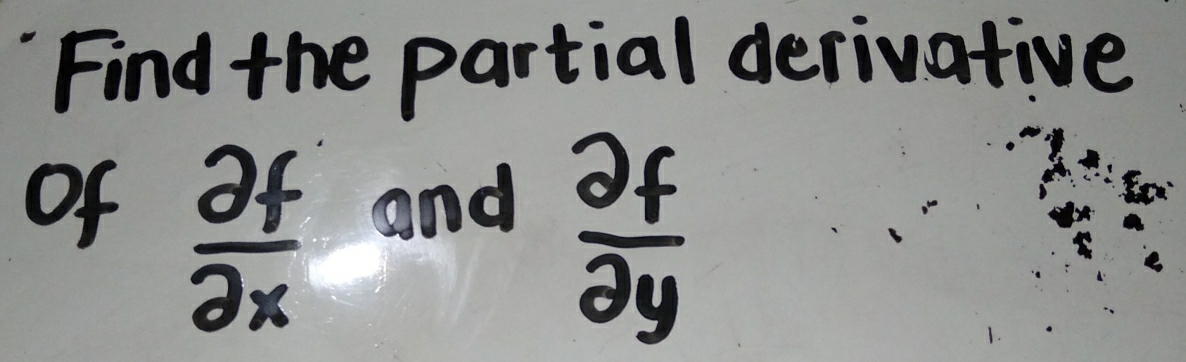 Find the partial derivative
Of ∂f/∂x and ∂f/∂y